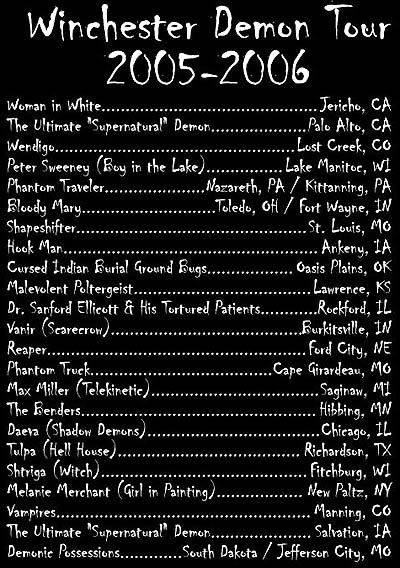 Winchester Demon Tour
2005-2006
Woman in White......................................Jericho, CA
The Ultimate "Supernatural" Demon.................Palo Alto, CA
Wendigo..........................................Lost Creek, CO
Peter Sweeney (Boy in the Lake)..............Lake Manitoc, WI
Phantom Traveler..................Nazareth, PA / Kittanning, PA
Bloody Mary........................Toledo, OH / Fort Wayne, IN
Shapeshifter.........................................St. Louis, MO
Hook Man............................................Ankeny, IA
Cursed Indian Burial Ground Bugs............... Oasis Plains, OK
Malevolent Poltergeist...............................Lawrence, KS
Dr. Sanford Ellicott & His Tortured Patients..........Rockford, IL
Vanir (Scarecrow)..................................Burkitsville, IN
Reaper...............................................Ford City, NE
Phantom Truck................................Cape Girardeau, MO
Max Miller (Telekinetic)..............................Saginaw, MI
The Benders..........................................Hibbing, MN
Daeva (Shadow Demons)..............................Chicago, IL
Tulpa (Hell House).................................Richardson, TX
Shtriga (Witch).....................................Fitchburg, WI
Melanie Merchant (Girl in Painting)................ New Paltz, NY
Vampires.............................................Manning, CO
The Ultimate "Supernatural" Demon..................Salvation, IA
Demonic Possessions...........South Dakota / Jefferson City, MO